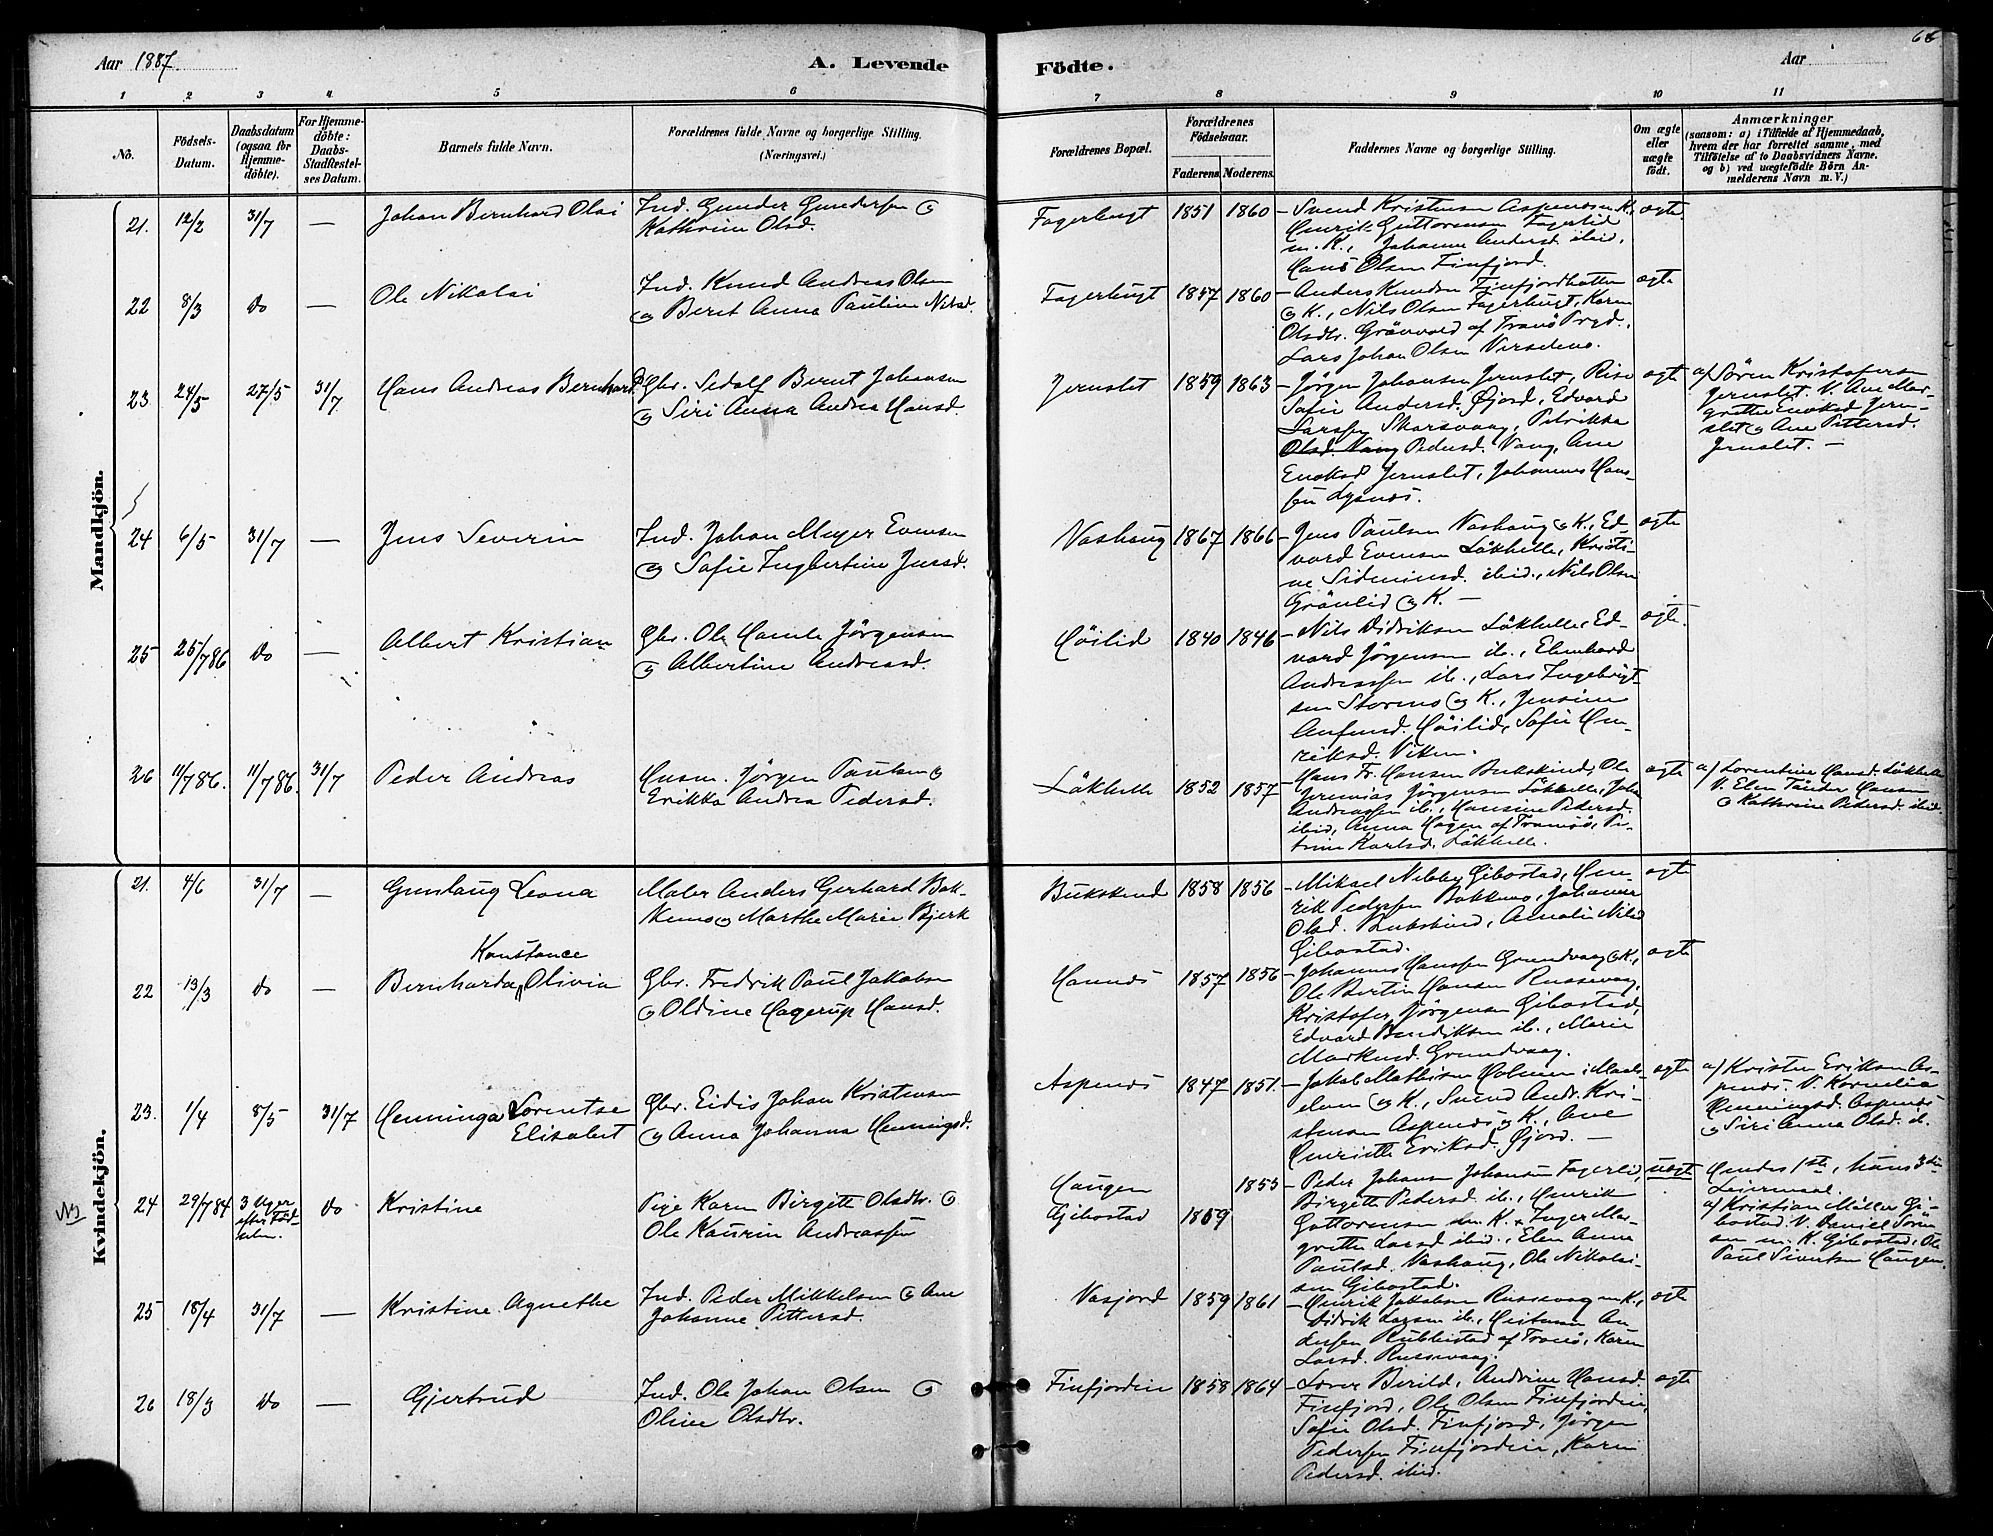 Aar 1887.
A. Levende
Födte.
Aar
1 2 3 4 5 6 7 8 9 10 11
No.
Födsels-
Datum.
Daabsdatum
(ogsaa for
Hjemme-
döbte).
For Hjemme-
döbte:
Daabs-
Stadfæstel-
ses Datum.
Barnets fulde Navn.
Forældrenes fulde Navne og borgerlige Stilling.
(Næringsvei.)
Forældrenes Bopæl.
Forældrenes
Födselsaar.
Faderens.
Moderens.
Faddernes Navne og borgerlige Stilling.
Om ægte
eller
uægte
födt.
Anmærkninger
(saasom: a) i Tilfælde af Hjemmedaab,
hvem der har forrettet samme, med
Tilföielse af to Daabsvidners Navne.
og b) ved uægtefödte Börn An-
melderens Navn m. V.)
Mandkjön.
21. 12/2 31/7 — Johan Bernhard Olai
Ind. Gunder Gundersen og
Kathrine Olsd.
Fagerbugt 1851 1860
Svend Kristensen Aspenes m. K.,
Henrik Guttormsen Fagerlid
m. K., Johanna Andersd. ibid,
Hans Olsen Finfjord.
ægte.
22 8/3 do — Ole Nikolai
Ind. Knud Andreas Olsen
og Berit Anna Pauline Nilsd.
Fagerbugt 1857 1860
Anders Knudsen Finfjordbotten
og K., Nils Olsen Fagerbugt, Karen
Olsdtr. Grönvold af Tranö Prgd.,
Lars Johan Olsen
ægte
23 24/5 27/5 31/7 Hans Andreas Bernhard
Gbr. Sedolf Bernt Johansen
og Siri Anna Andrea Hansd.
Jernslet 1859 1863
Jørgen Johansen Jernslet,
Sofie Andersd. Øjord, Edvard
Larssen Skarsvaag, Petrikke
Olsd. Vang Pedersd. Vang, Ane
Enoksd Jernslet, Johannes Han-
sen Lysnes.
ægte
a) Sören Kristofersen
Jernslet. V. Ane Mar-
grethe Enoksd Jern-
slet og Ane Pettersd.
Jernslet. —
24 6/5 31/7 — Jens Severin
Ind. Johan Meyer Evensen
og Sofie Ingbertine Jensd.
Vashaug 1867 1866
Jens Paulsen Vashaug og K., Ed-
vard Evensen Løkhelle, Kristi-
ne ibid., Nils Olsen
Grönlid og K. —
ægte
25 25/7 86 do — Albert Kristian
Gbr. Ole Hamle Jörgensen
og Albertine Andreasd.
Höilid 1840 1846
Nils Didriksen Løkhelle, Ed-
vard Jørgensen ib., Edenhard
Andreassen ib., Lars Ingebrigt-
sen Stormo og K., Jensine
Höilid, Sofie Hen-
riksd. Viken.
ægte.
26 11/7 86. 11/7 86. 31/7 Peder Andreas
Husm. Jörgen Paulsen og
Erikka Andrea Pedersd.
Løkhelle 1852 1857
Hans Fr. Hansen Bukskind, Ole
Jeremias Jörgensen Løkhelle, Johan
Andreassen ib., Hansine Pedersd.
ibid, Anna Hagen af Tromsö, Pe-
trine Karlsd. Løkhelle.
ægte
a) Lorentine Hansd. Løkhelle
V. Elen Tönder Hansen
og Kathrine Pedersd. ibid.
Kvindekjön.
21. 4/6 31/7 — Gunlaug Leona
Maler Anders Gerhard Bak-
kemo og Marthe Marie Bjerk
Bukskind 1858 1856
Mikael Gibostad, Hen-
rik Pedersen Bakkemo, Johanna
Olsd. Bukskind, Amalie Nilsd
Gibostad.
ægte
22 13/3 do — Bernharda Konstance Olivia
Gbr. Fredrik Paul Jakobsen
og Oldine Hagerup Hansd.
Hannes 1857 1856
Johannes Hanssen Grundvaag og K.,
Ole Bertin Hansen Russevaag,
Kristofer Jörgensen Gibostad,
Edvard Bendiksen ib., Marie
Markusd. Grundvaag.
ægte
23. 1/4 8/5 31/7 Henninga Lorentse
Elisabet
Gbr. Eidis Johan Kristensen
og Anna Johanna Henningsd.
Aspenes 1847 1851.
Jakob Mathisen Holmen i Maals-
elven og K., Svend Andr. Kri-
stensen Aspenes og K., Ane
Henriette Eriksd. Øjord. —
ægte
a) Kristen Eriksen As-
penes. V. Kornelia
Henningsd. Aspenes
og Siri Anna Olsd. ib.
24 29/7 84 3 Uger
efter Föd-
selen. do Kristine
Pige Karen Birgitte Olsdtr. og
Ole Kaurin Andreassen
Haugen 1853
Gibostad 1859
Peder Johan Johansen Fagerlid,
Birgitte Pedersd. ib., Henrik
Guttormsen K. Inger Mar-
grethe Larsd. ibid., Elen Anna
Paulsd. Vashaug, Ole Nikolai-
sen Gibostad.
uægte
Hendes 1ste, hans 3die
Leiermaal.
a) Kristian Möller Gi-
bostad. V. Daniel Sören-
sen m. K. Gibostad, Ole
Paul Sivertsen Haugen.
25 18/4 31/7 — Kristine Agnethe
Ind. Peder Mikkelsen og Ane
Johanne Pettersd.
Vasjord 1859 1861
Henrik Jakobsen Russevaag m K.,
Didrik Larsen ib., Heitman An-
dersen Rubbestad af Tranö, Karen
Larsd. Russevaag.
ægte
26 18/3 do — Gjertrud
Ind. Ole Johan Olsen og
Oline Olsdtr.
Finfjordeid 1858 1864
Andrine Hansd.
Finfjord, Ole Olsen Finfjordeid,
Sofie Olsd. Finfjord, Jørgen
Pedersen Finfjordeid, Karen
Pedersd. ibid.
ægte